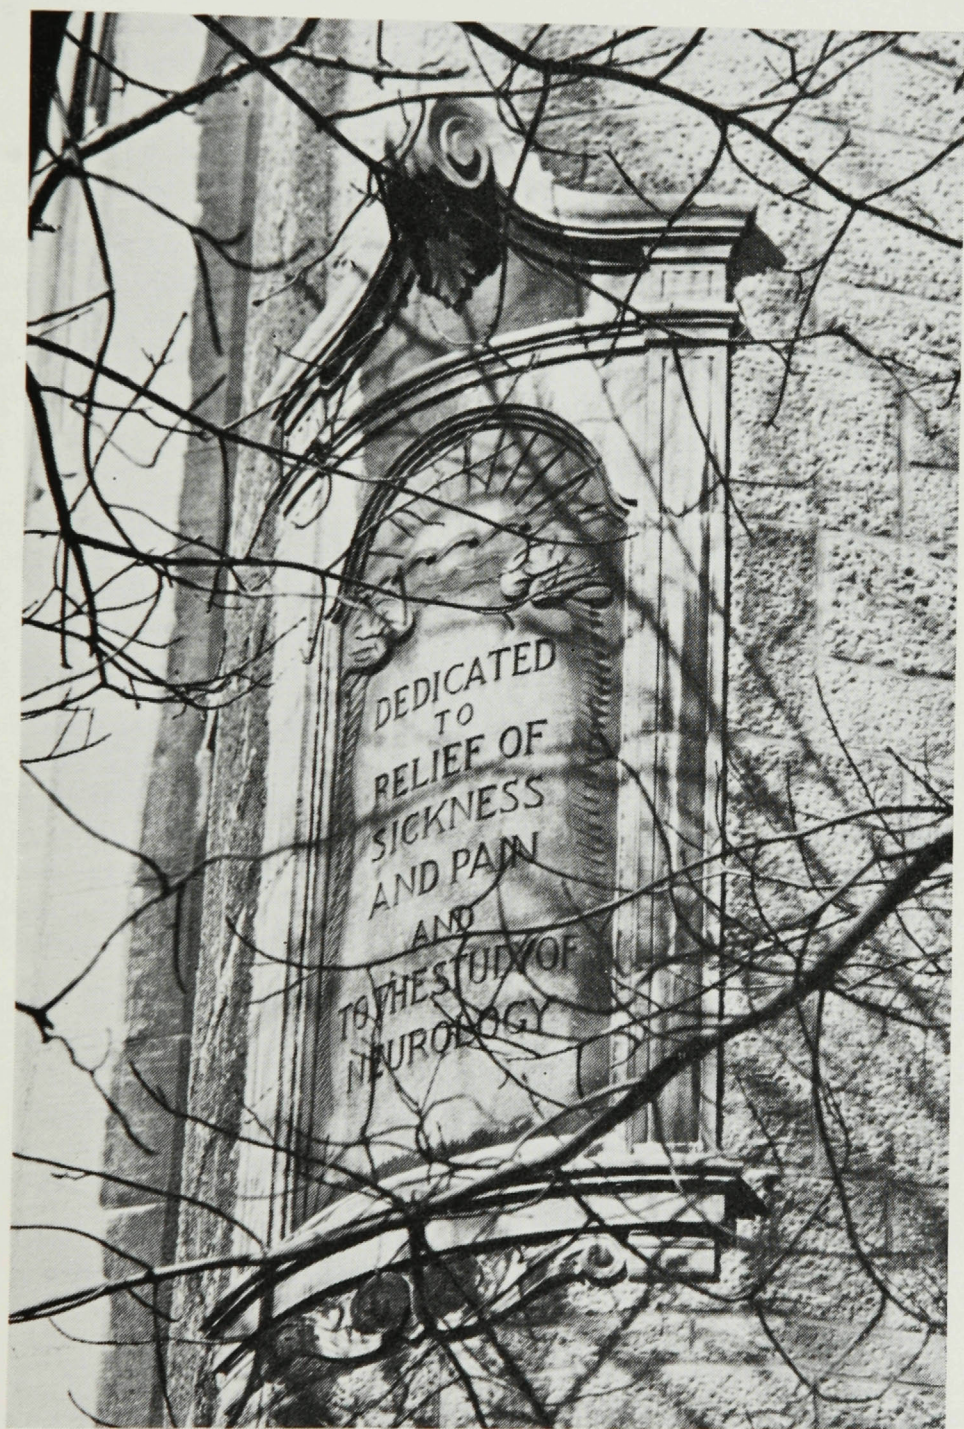 DEDICATED
TO
RELIEF OF
SICKNESS
AND PAIN
AND
TO THE STUDY OF
NEUROLOGY